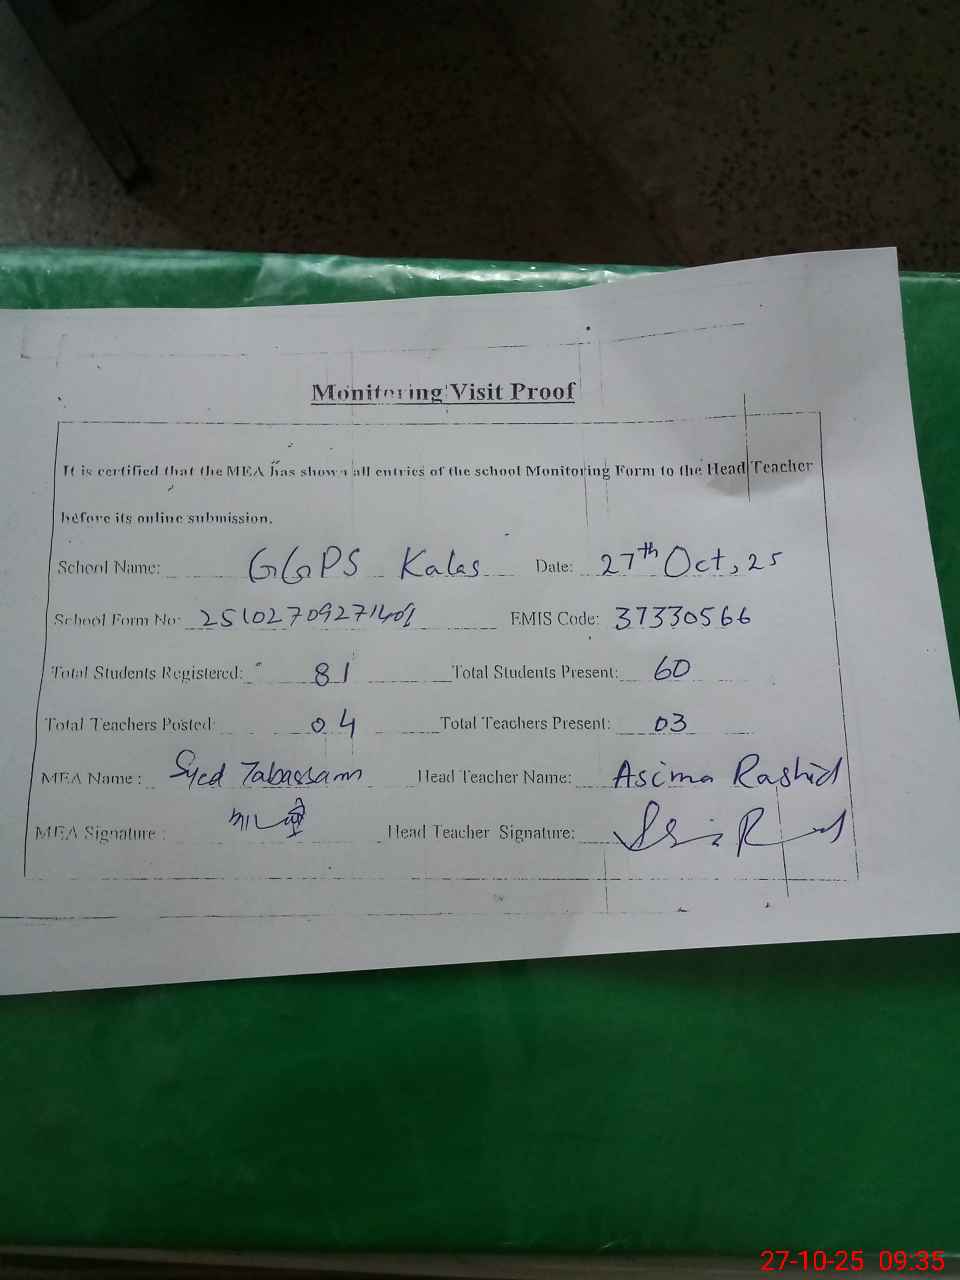 Monitoring Visit Proof
It is certified that the MEA has shown all entries of the school Monitoring Form to the Head Teacher
before its online submission.
School Name: GGPS Kalas Date: 27th Oct, 25
School Form No: EMIS Code: 37330566
Total Students Registered: 81 Total Students Present: 60
Total Teachers Posted: 04 Total Teachers Present: 03
MEA Name: Syed Tabassam Head Teacher Name: Asima Rashid
MEA Signature: Head Teacher Signature:
27-10-25 09:35